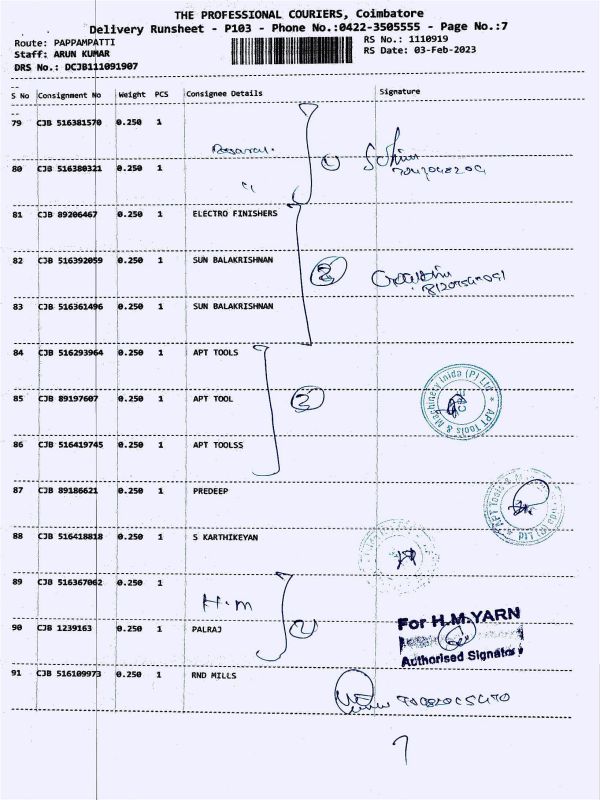 THE PROFESSIONAL COURIERS, Coimbatore
Delivery Runsheet - P103 - Phone No.:0422-3505555 - Page No.:7
Route: PAPPAMPATTI RS No.: 1110919
Staff: ARUN KUMAR RS Date: 03-Feb-2023
DRS No.: DCJB111091907
S No Consignment No Weight PCS Consignee Details Signature
79 CJB 516381570 0.250 1
80 CJB 516380321 0.250 1
81 CJB 89206467 0.250 1 ELECTRO FINISHERS
82 CJB 516392059 0.250 1 SUN BALAKRISHNAN
83 CJB 516361496 0.250 1 SUN BALAKRISHNAN
84 CJB 516293964 0.250 1 APT TOOLS
85 CJB 89197607 0.250 1 APT TOOL
APT Tools & Machinery Inida (P) Ltd
86 CJB 516419745 0.250 1 APT TOOLSS
87 CJB 89186621 0.250 1 PREDEEP
88 CJB 516418818 0.250 1 S KARTHIKEYAN
89 CJB 516367062 0.250 1
H.m
For H.M.YARN
90 CJB 1239163 0.250 1 PALRAJ
Authorised Signator
91 CJB 516109973 0.250 1 RND MILLS
7